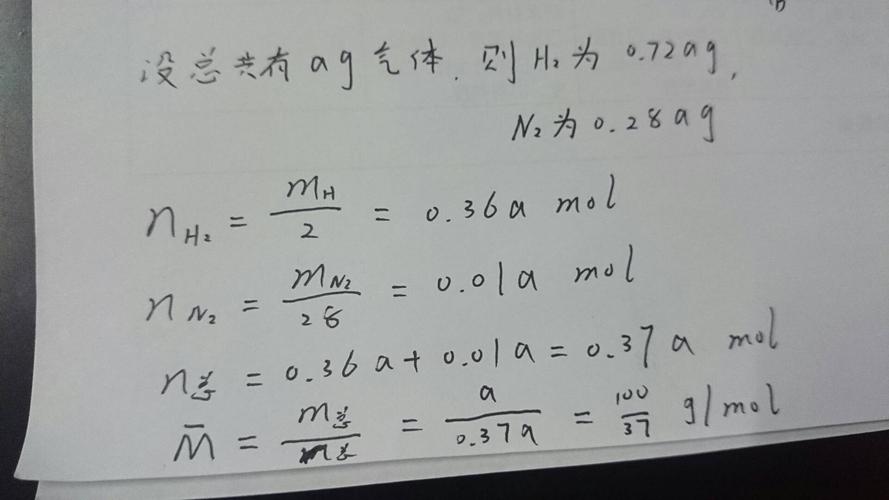 设总共有 a g 气体. 则 H₂ 为 0.72 a g,
N₂ 为 0.28 a g
n_{H₂} = \frac{m_H}{2} = 0.36 a mol
n_{N₂} = \frac{m_{N₂}}{28} = 0.01 a mol
n_总 = 0.36 a + 0.01 a = 0.37 a mol
\bar{M} = \frac{m_总}{n_总} = \frac{a}{0.37 a} = \frac{100}{37} g/mol